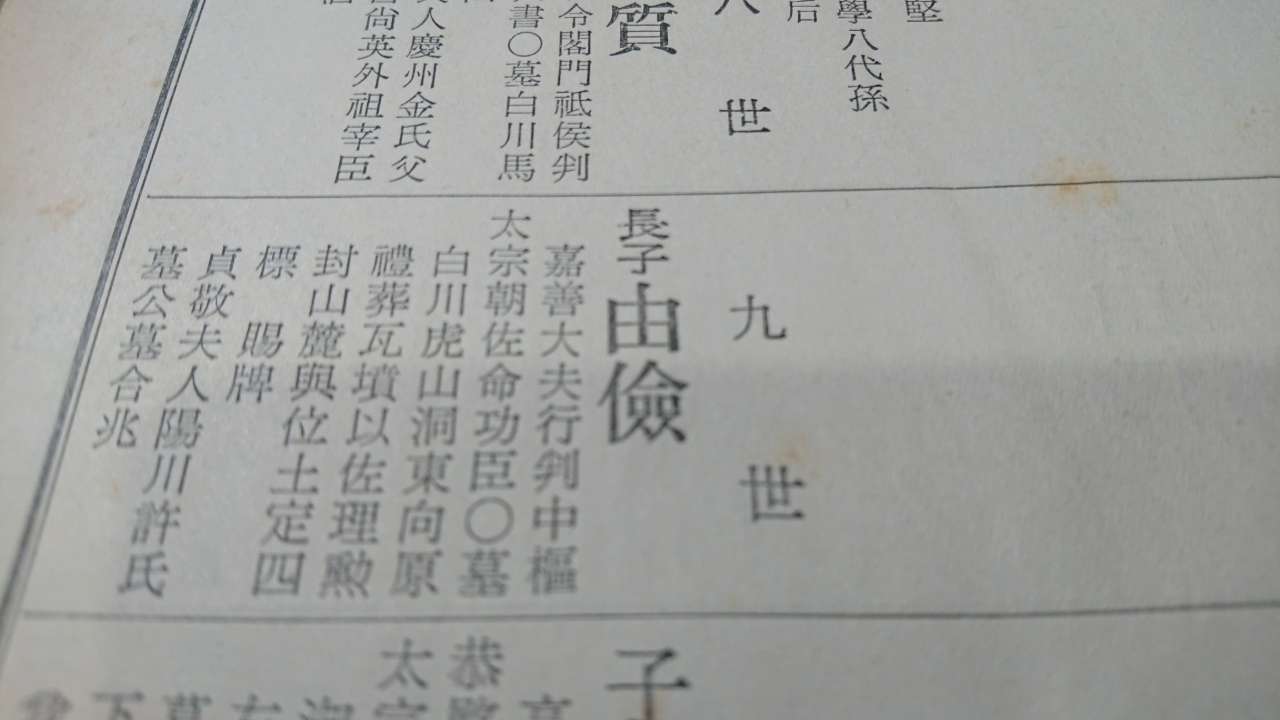 堅
學八代孫
后
八世
質
令閤門祗侯判
書○墓白川馬
人慶州金氏父
尙英外祖宰臣
九世
長子由儉
嘉善大夫行判中樞
太宗朝佐命功臣○墓
白川虎山洞東向原
禮葬瓦墳以佐理勲
封山麓與位土定四
標 賜牌
貞敬夫人陽川許氏
墓公墓合兆
子
恭
太